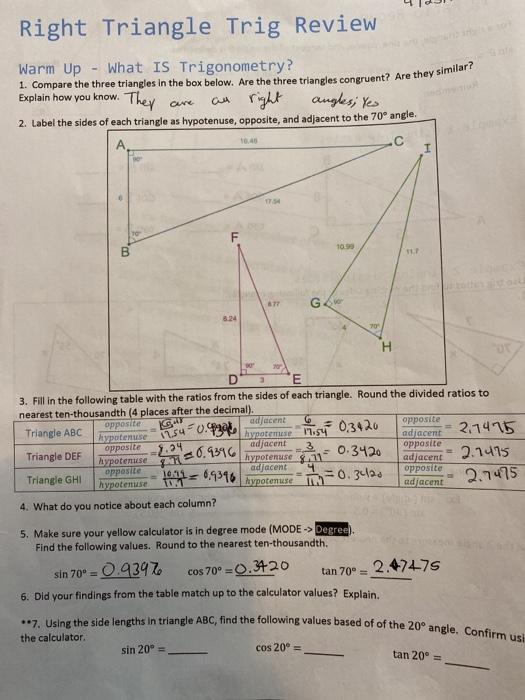 Right Triangle Trig Review
Warm Up - What IS Trigonometry?
1. Compare the three triangles in the box below. Are the three triangles congruent? Are they similar?
Explain how you know. They are all right angles; Yes
2. Label the sides of each triangle as hypotenuse, opposite, and adjacent to the 70° angle.
A 16.48 C I
90°
6 17.54
70°
B F 10.99 11.7
G 90°
8.24 8.77 4 70°
H
90° 70°
D 3 E
3. Fill in the following table with the ratios from the sides of each triangle. Round the divided ratios to
nearest ten-thousandth (4 places after the decimal).
Triangle ABC opposite/hypotenuse = /17.54 = adjacent/hypotenuse = 6/17.54 = 0.3420 opposite/adjacent = 2.7475
Triangle DEF opposite/hypotenuse = 8.24/8.77 = 0.9396 adjacent/hypotenuse = 3/8.77 = 0.3420 opposite/adjacent = 2.7475
Triangle GHI opposite/hypotenuse = 10.99/11.7 = 0.9396 adjacent/hypotenuse = 4/11.7 = 0.3420 opposite/adjacent = 2.7475
4. What do you notice about each column?
5. Make sure your yellow calculator is in degree mode (MODE -> Degree).
Find the following values. Round to the nearest ten-thousandth.
sin 70° = 0.9397 cos 70° = 0.3420 tan 70° = 2.7475
6. Did your findings from the table match up to the calculator values? Explain.
**7. Using the side lengths in triangle ABC, find the following values based of of the 20° angle. Confirm usi
the calculator.
sin 20° = ____ cos 20° = ____ tan 20° = ____